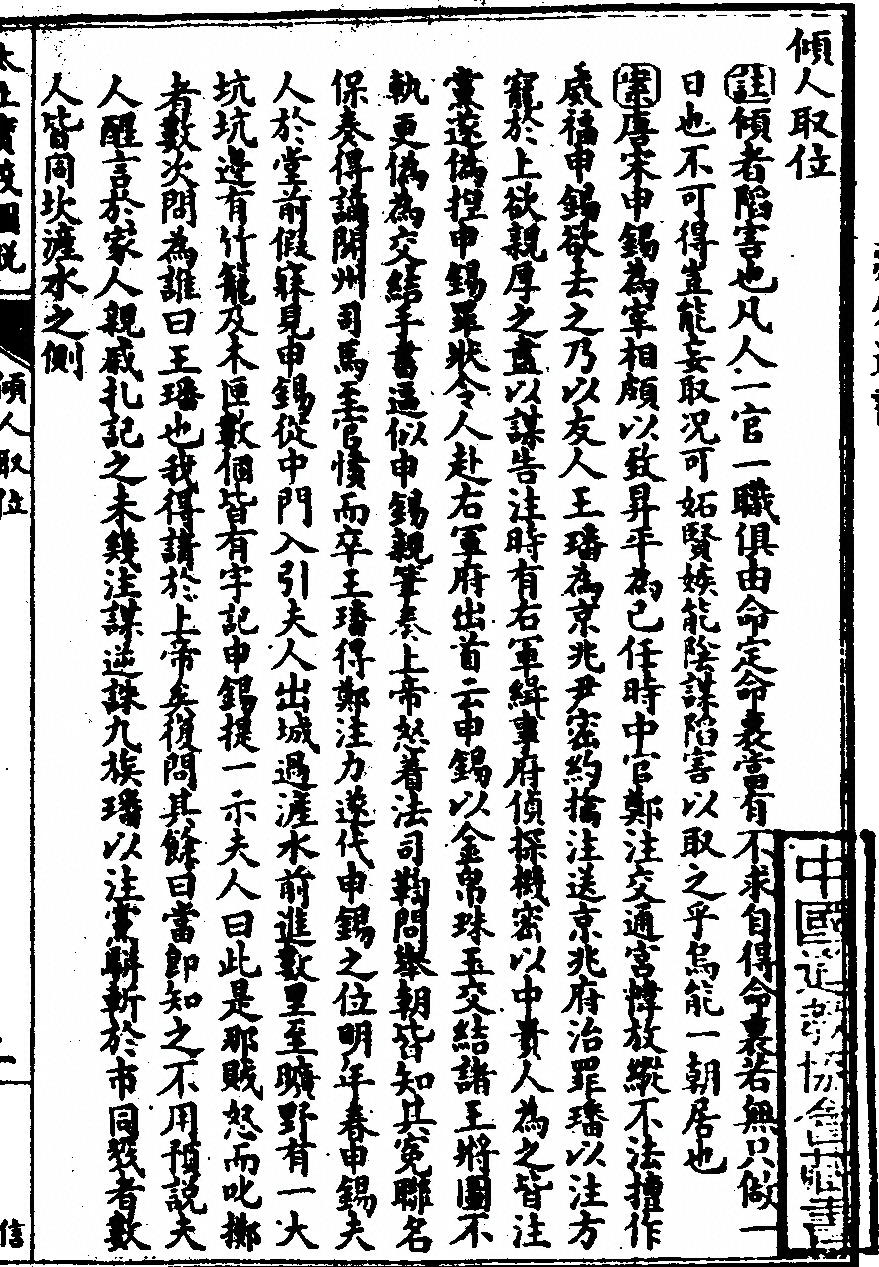 傾人取位
註傾者陷害也凡人一官一職俱由命定命裏當有不求自得命裏若無只做一
日也不可得豈能妄取况可妬賢嫉能陰謀陷害以取之乎烏能一朝居也
案唐宋申錫為宰相頗以致昇平為己任時中官鄭注交通宮幃放縱不法擅作
威福申錫欲去之乃以友人王璠為京兆尹密約擒注送京兆府治罪璠以注方
寵於上欲親厚之盡以謀告注時有右軍緝事府偵探機密以中貴人為之皆注
黨遂偽揑申錫罪狀令人赴右軍府出首云申錫以金帛珠玉交結諸王將圖不
軌更偽為交結手書逼似申錫親筆奏上帝怒着法司鞫問舉朝皆知其寃聯名
保奏得謫開州司馬至官憤而卒王璠得鄭注力遂代申錫之位明年春申錫夫
人於堂前假寐見申錫從中門入引夫人出城過滻水前進數里至曠野有一大
坑坑邊有竹籠及木匣數個皆有字記申錫提一示夫人曰此是那賊怒而叱擲
者數次問為誰曰王璠也我得請於上帝矣復問其餘曰當即知之不用預説夫
人醒言於家人親戚札記之未幾注謀逆誅九族璠以注黨騈斬於市同戮者數
人皆同坎滻水之側
傾人取位
信
中國道教協會藏書